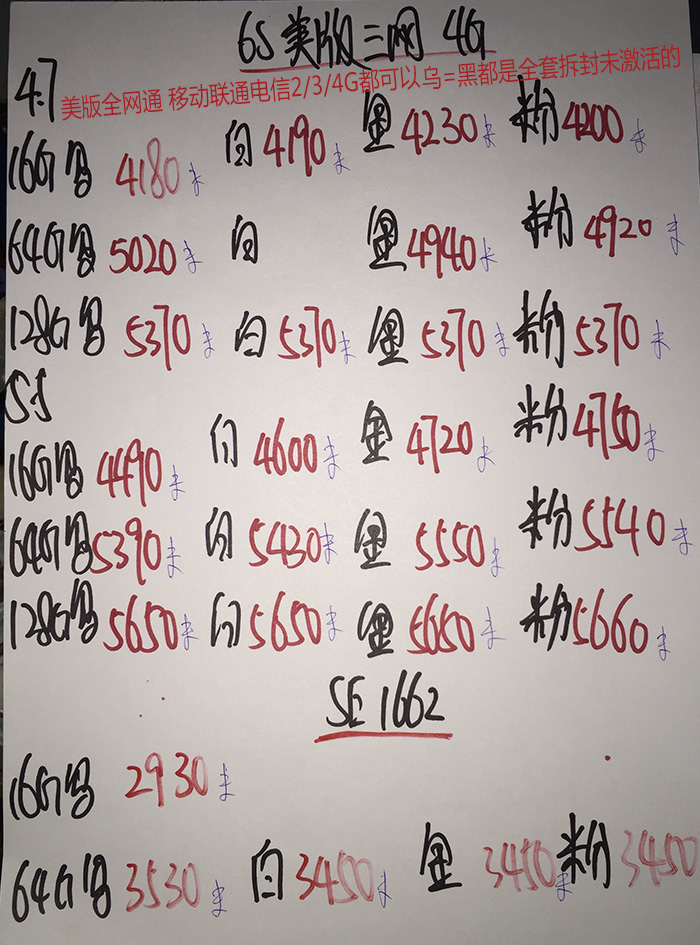 6S 美版三网 4G
美版全网通 移动联通电信2/3/4G都可以乌=黑都是全套拆封未激活的
4.7
16G乌 4180未 白4190未 金4230未 粉4200未
64G乌5020未 白 金4940未 粉4920未
128G乌5370未 白5370未 金5370未 粉5370未
5.5
16G乌4490未 白4600未 金4720未 粉4750未
64G乌5390未 白5430未 金5550未 粉5540未
128G乌5650未 白5650未 金5650未 粉5660未
SE 1662
16G乌 2930未
64G乌3530未 白3450未 金3450未 粉3450